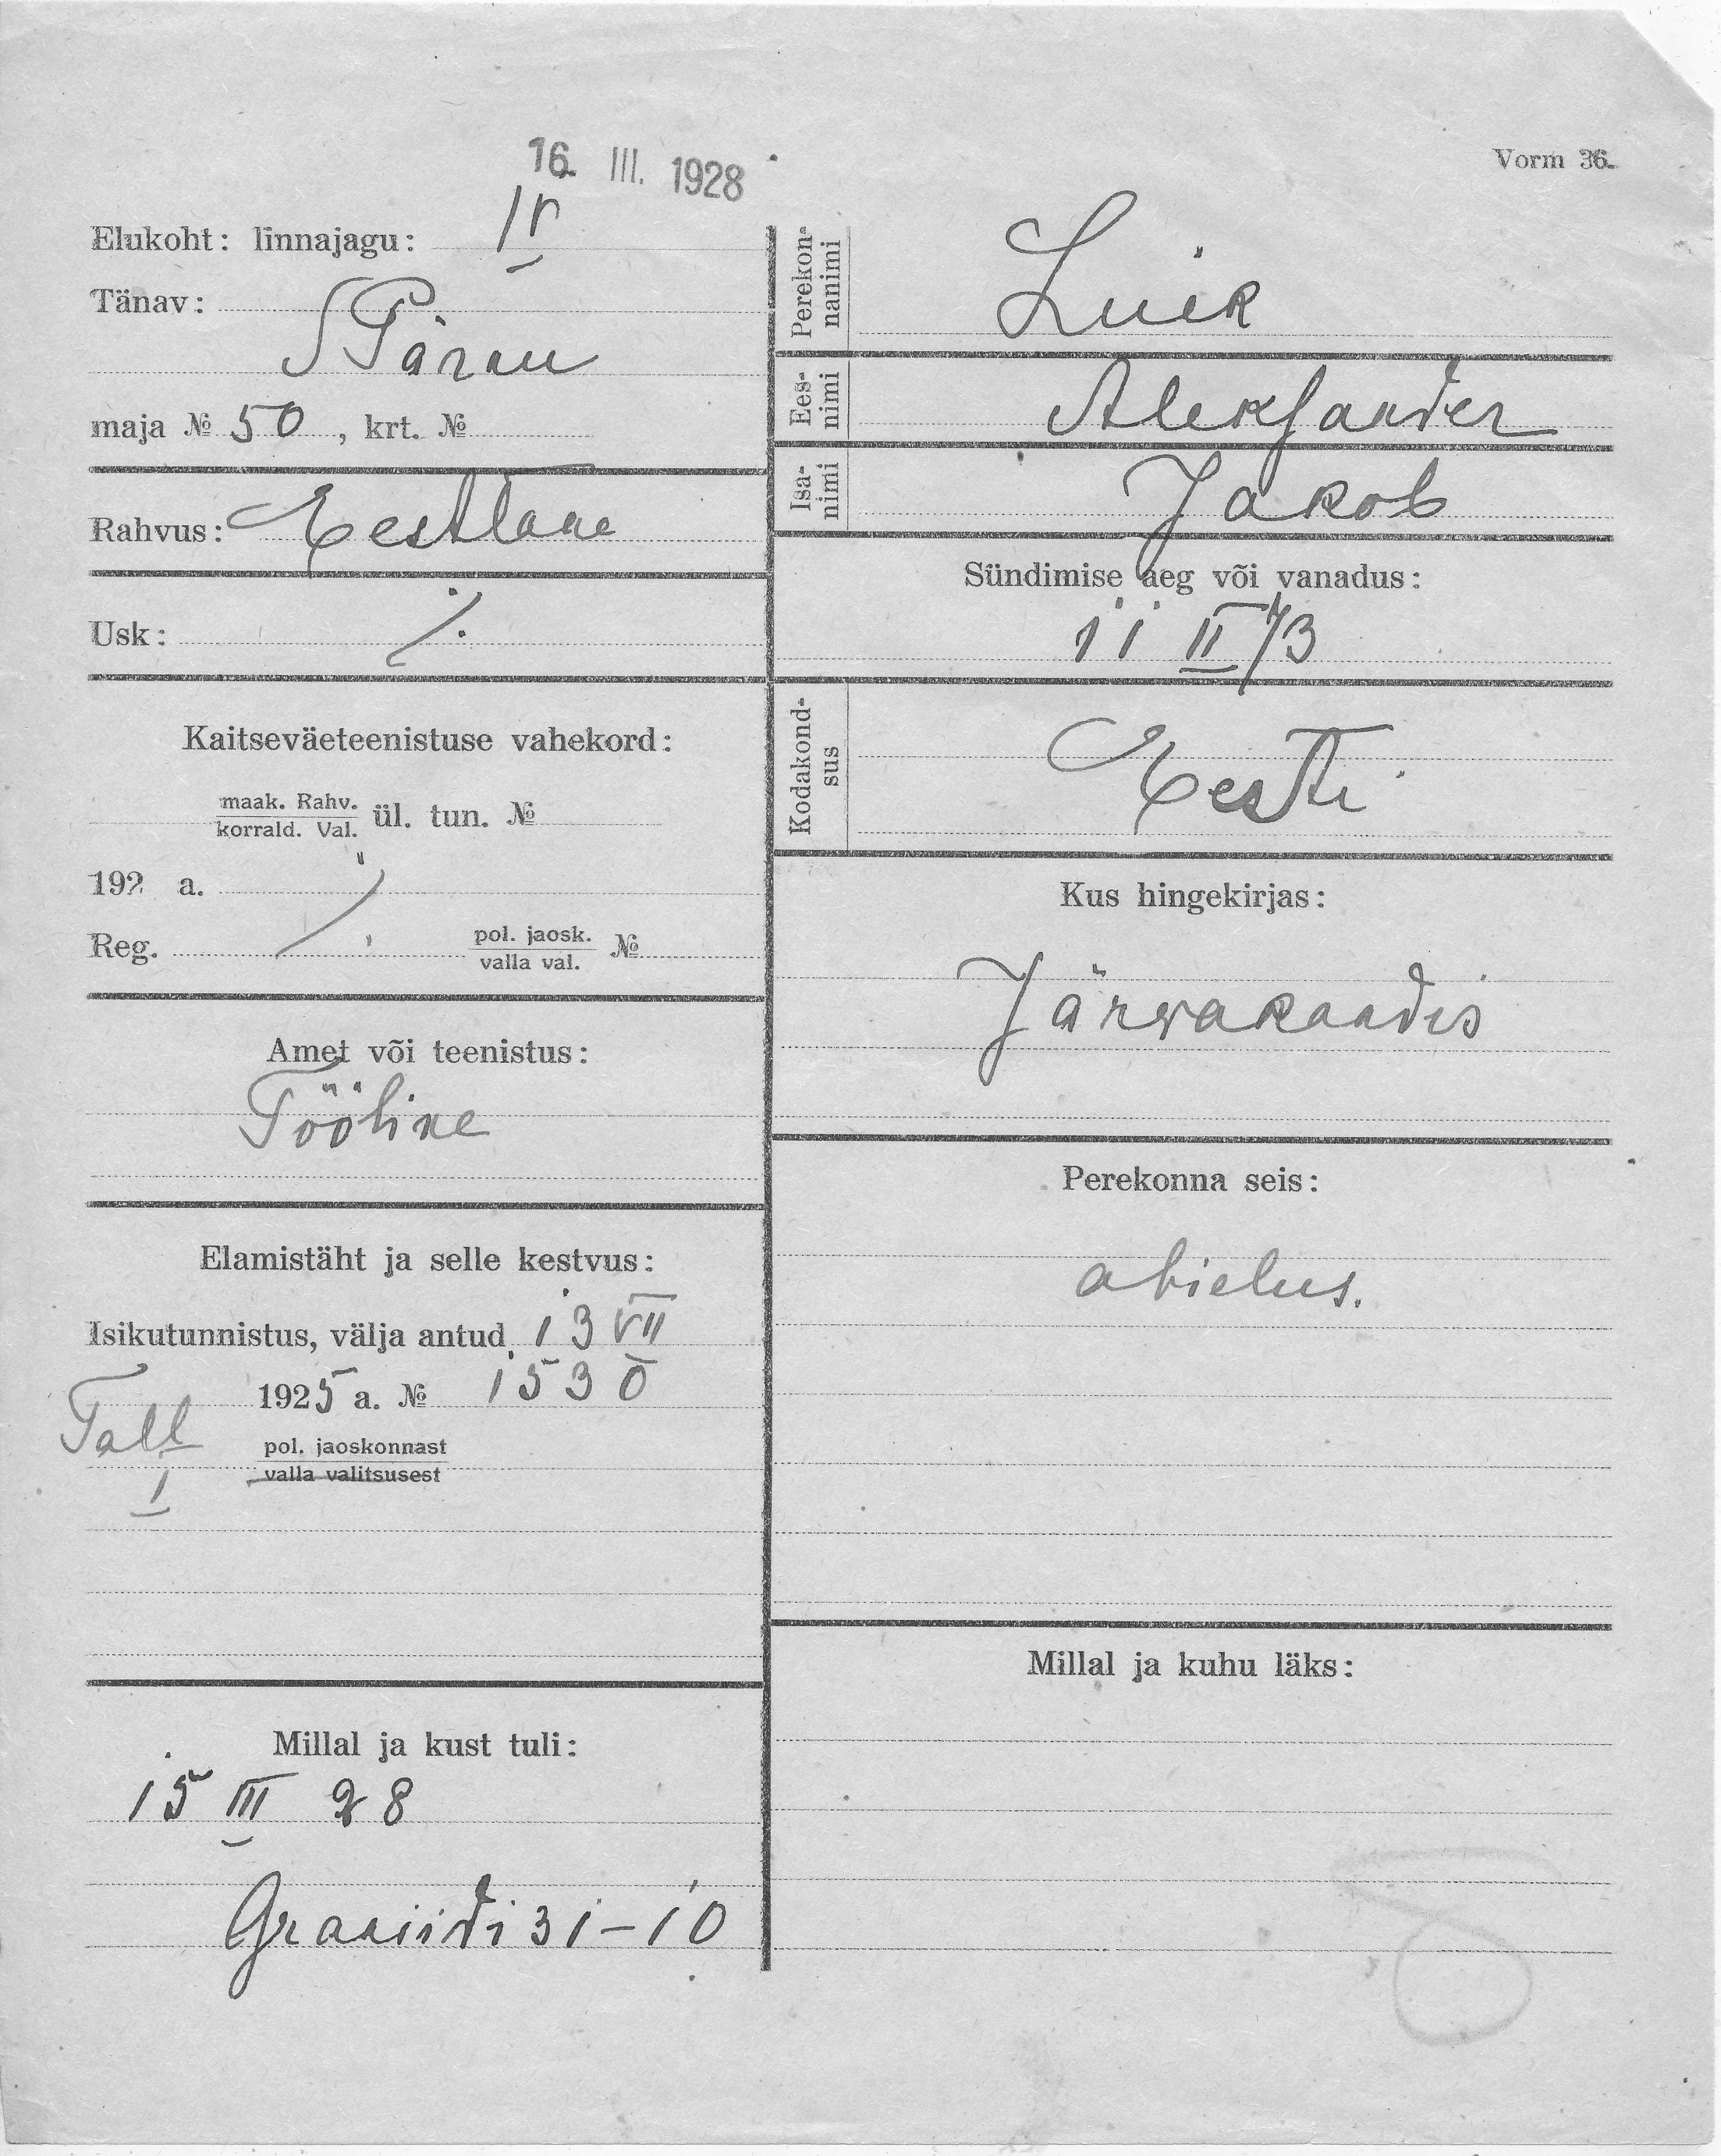 16. III. 1928
Vorm 36.
Elukoht: linnajagu: IV
Tänav:
S Pärnu
maja № 50, krt. №
Rahvus: Eestlane
Usk: /.
Kaitseväeteenistuse vahekord:
maak. Rahv.
korrald. Val. ül. tun. №
192 a.
Reg. pol. jaosk. №
valla val.
Amet või teenistus:
Tööline
Elamistäht ja selle kestvus:
Isikutunnistus, välja antud 13 VII
1925 a. № 1530
Tall pol. jaoskonnast
I valla valitsusest
Millal ja kust tuli:
15 III 28
Graniidi 31-10
Perekon-
nanimi
Luik
Ees-
nimi
Aleksander
Isa-
nimi
Jakob
Sündimise aeg või vanadus:
11 II 73
Kodakond-
sus
Eesti
Kus hingekirjas:
Järvakandis
Perekonna seis:
abielus.
Millal ja kuhu läks: